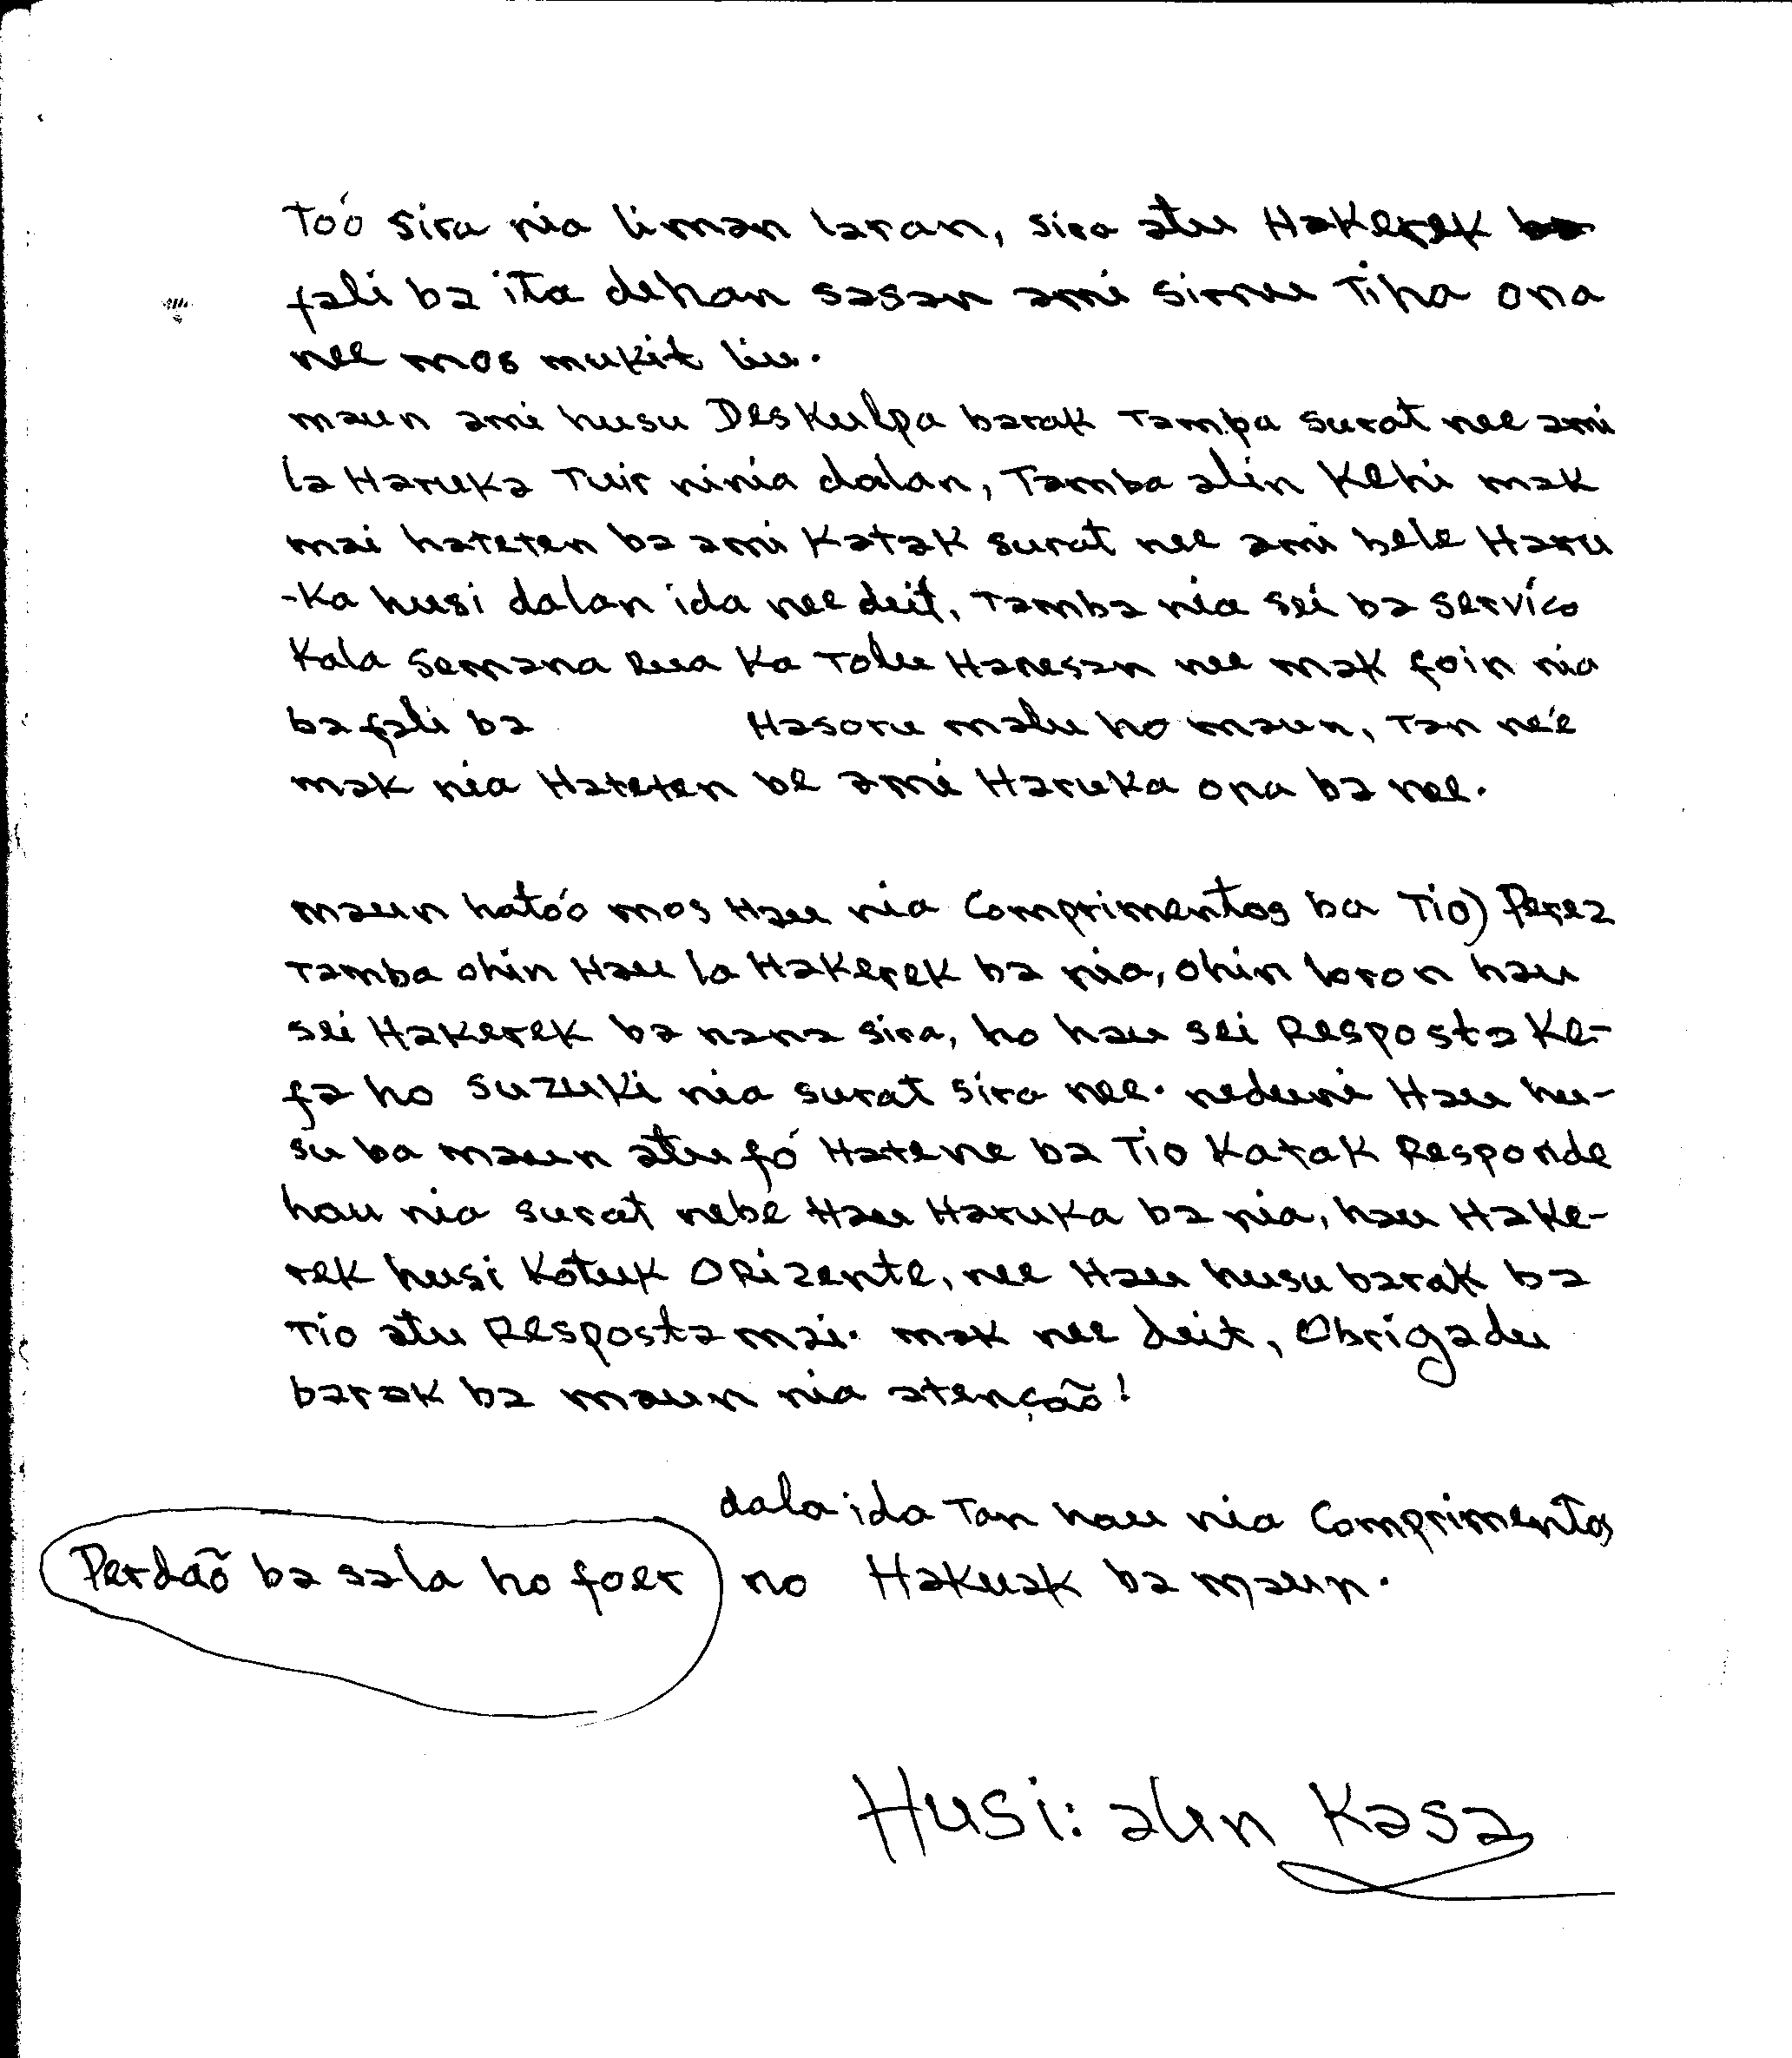 Toó sira nia liman laran, sira atu Hakerek
fali ba ita dehan sasan ami simu Tiha ona
nee mos mukit liu.
maun ami husu Deskulpa barak Tamba surat nee ami
la Haruka Tuir ninia dalan, Tamba alin Kehi mak
mai hateten ba ami Katak surat nee ami bele Haru
-Ka husi dalan ida nee deit, Tamba nia sei ba servico
Kala Semana Rua Ka Tolu Hanesan nee mak foin nia
ba fali ba Hasoru malu ho maun, Tan neé
mak nia Hateten be ami Haruka ona ba nee.
maun hatoó mos Hau nia Comprimentos ba Tio) Perez
Tamba ohin Hau la Hakerek ba nia, ohin loron hau
sei Hakerek ba nana sira, ho hau sei Resposta Ke-
fa ho Suzuki nia surat sira nee. neduni Hau hu-
su ba maun atu fó Hatene ba Tio Katak Responde
hau nia surat nebe Hau Haruka ba nia, hau Hake-
rek husi Kotuk ORizente, nee Hau husu barak ba
Tio atu Resposta mai. mak nee deit, Obrigadu
barak ba maun nia atençaõ!
dala ida Tan hau nia Comprimentos
no Hakuak ba maun.
Perdaõ ba sala ho foer
Husi: alin Kasa